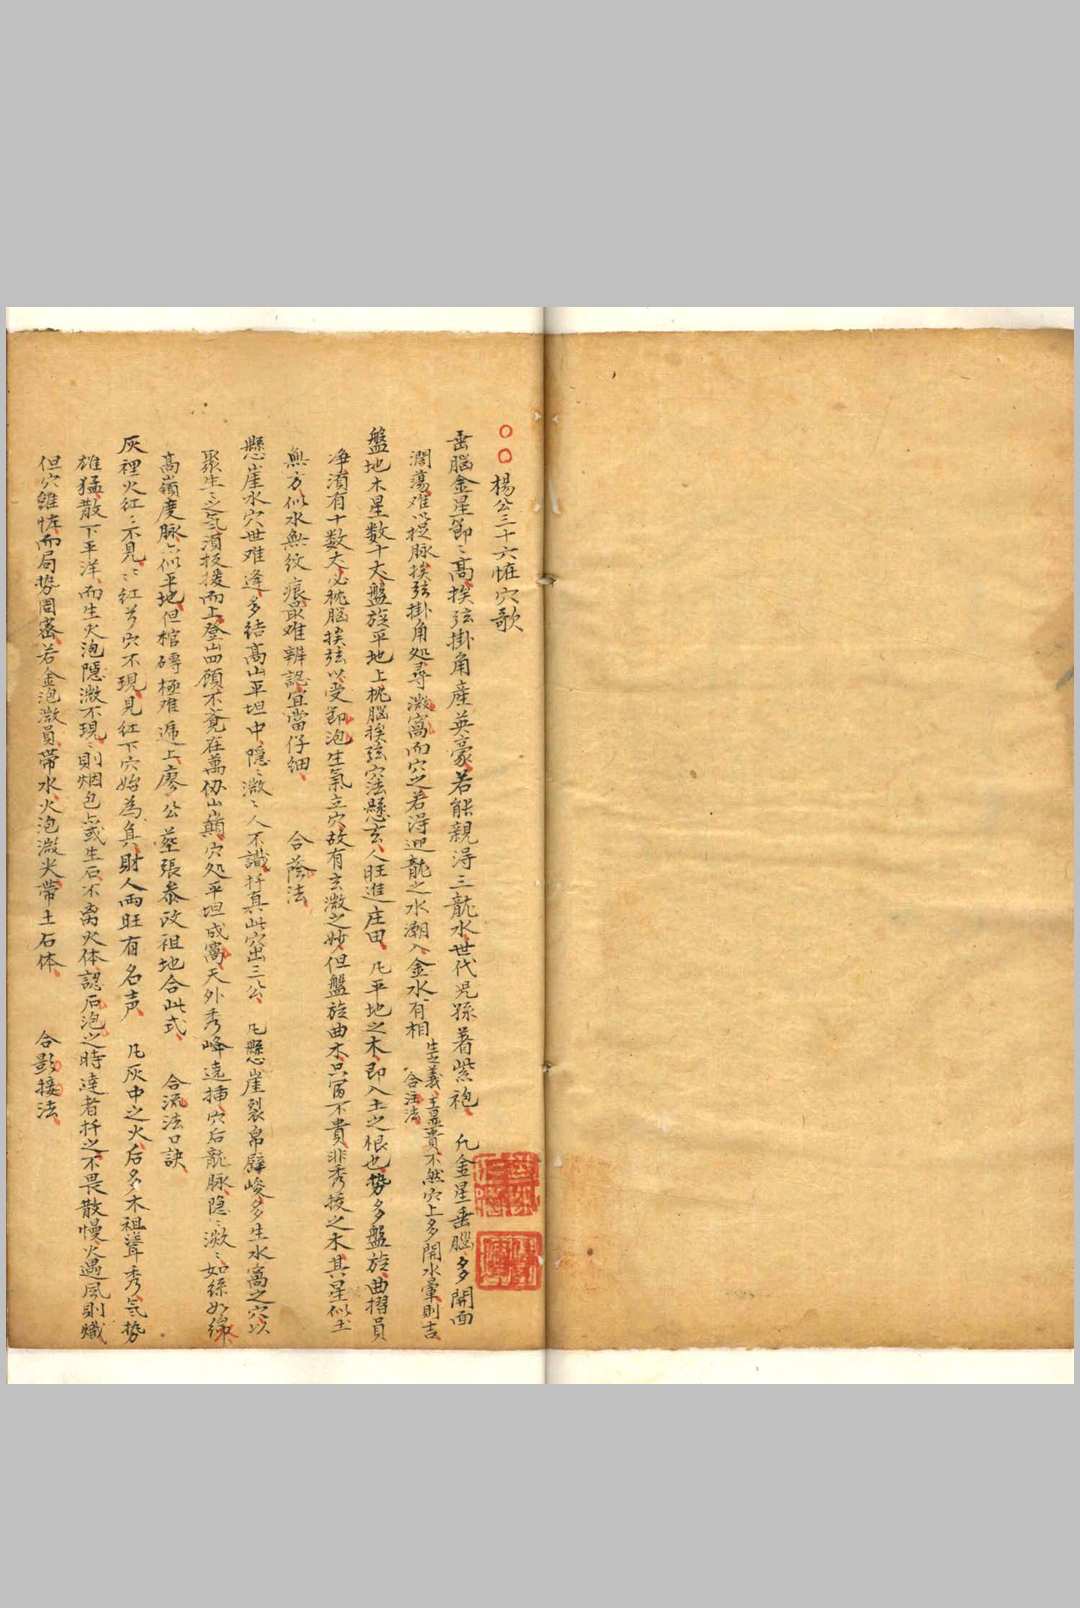 楊公三十六恠穴歌
垂腦金星節〻高挨弦掛角產英豪若能親得三龍水世代児孫著紫袍 凡金星垂腦多開面
濶蕩难以捉脉挨弦掛角処尋微窩而穴之若得迎龍之水潮入金水有相
生之義主益貴不然穴上多開水暈則吉
合注法
盤地木星数十丈盤旋平地上枕腦挨弦穴法懸玄人旺進庄田 凡平地之木即入土之根也势多盤旋曲摺員
净湏有十数丈必枕腦挨弦以受節泡生氣立穴故有玄微之妙但盤旋曲木只富不貴非秀拔之木其星似土
無方似水無紋痕最难辨認宜當仔細 合蔭法
懸崖水穴世难逢多结高山平坦中隱〻微〻人不識扦真此穴出三公 凡懸崖裂帛壁峻多生水窩之穴以
聚生〻之气湏扳援而上登山四顧不竟在萬仭山巔穴処平坦成窩天外秀峰遠插穴后龍脉隐〻微〻如絲如線
高嶺度脉〻似平地但棺磚極难逓上廖公塟張叅政祖地合此式 合流法口訣
灰裡火红〻不見〻红于穴不現見红下穴始為真財人两旺有名声 凡灰中之火后多木祖聳秀气势
雄猛散下平洋而生火泡隱微不現〻則烟包点或生石不离火体認后泡之時達者扦之不畏散慢火遇風則熾
但穴雖恠而局势固密若金泡微員帶水火泡微尖帶土石体 合影接法